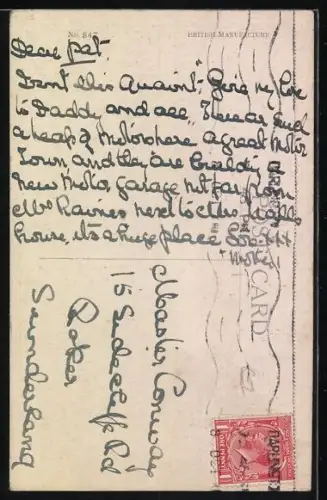 No. 847
BRITISH MANUFACTURE
Dear Pat.
Isn't this Quaint. Give my love
to Daddy and all, There are such
a heap of Motors here a great Motor
Town, and they are building a
New Motor garage not far from
Mrs Raines next to Mrs
house, its a huge place Love
Mother
POST CARD
Master Conway
15 Sidecliffe Rd
Roker
Sunderland
DARLINGTON
ONE PENNY